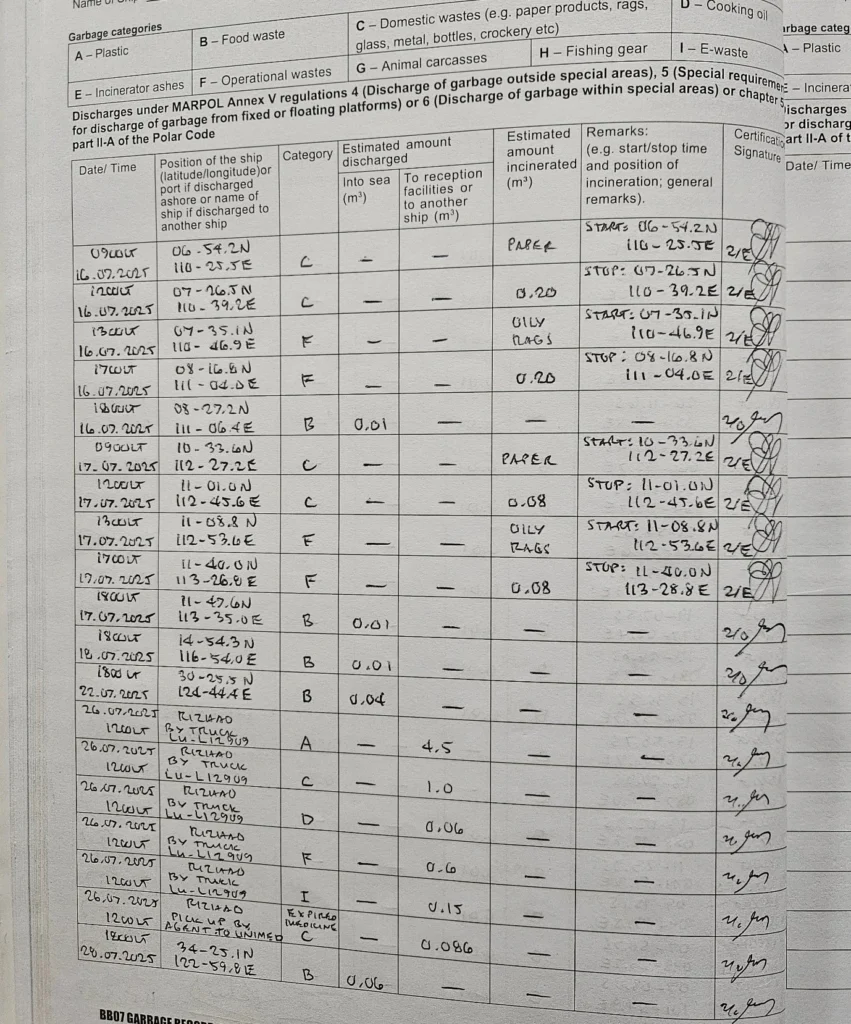 Garbage categories
A – Plastic
B – Food waste
C – Domestic wastes (e.g. paper products, rags, glass, metal, bottles, crockery etc)
D – Cooking oil
E – Incinerator ashes
F – Operational wastes
G – Animal carcasses
H – Fishing gear
I – E-waste
Discharges under MARPOL Annex V regulations 4 (Discharge of garbage outside special areas), 5 (Special
for discharge of garbage from fixed or floating platforms) or 6 (Discharge of garbage within special areas) or
part II-A of the Polar Code
Date/ Time
Position of the ship (latitude/longitude)or port if discharged ashore or name of ship if discharged to another ship
Category
Estimated amount discharged
Into sea (m³)
To reception facilities or to another ship (m³)
Estimated amount incinerated (m³)
Remarks: (e.g. start/stop time and position of incineration; general remarks).
Signature
0900LT 16.07.2025 06-54.2N 110-25.5E C — — PAPER START: 06-54.2N 110-25.5E 2/E
1200LT 16.07.2025 07-26.5N 110-39.2E C — — 0.20 STOP: 07-26.5N 110-39.2E 2/E
1300LT 16.07.2025 07-35.1N 110-46.9E F — — OILY RAGS START: 07-35.1N 110-46.9E 2/E
1700LT 16.07.2025 08-16.8N 111-04.0E F — — 0.20 STOP: 08-16.8N 111-04.0E 2/E
1800LT 16.07.2025 08-27.2N 111-06.4E B 0.01 — — — 2/O
0900LT 17.07.2025 10-33.6N 112-27.2E C — — PAPER START: 10-33.6N 112-27.2E 2/E
1200LT 17.07.2025 11-01.0N 112-45.6E C — — 0.08 STOP: 11-01.0N 112-45.6E 2/E
1300LT 17.07.2025 11-08.8N 112-53.6E F — — OILY RAGS START: 11-08.8N 112-53.6E 2/E
1700LT 17.07.2025 11-40.0N 113-26.8E F — — 0.08 STOP: 11-40.0N 113-28.8E 2/E
1800LT 17.07.2025 11-47.6N 113-35.0E B 0.01 — — — 2/O
1800LT 18.07.2025 14-54.3N 116-54.0E B 0.01 — — — 2/O
1800LT 22.07.2025 30-25.5N 124-44.4E B 0.04 — — —
26.07.2025 1200LT RIZHAO BY TRUCK LU-L12909 A — 4.5 — —
26.07.2025 1200LT RIZHAO BY TRUCK LU-L12909 C — 1.0 — —
26.07.2025 1200LT RIZHAO BY TRUCK LU-L12909 D — 0.06 — —
26.07.2025 1200LT RIZHAO BY TRUCK LU-L12909 F — 0.6 — —
26.07.2025 1200LT RIZHAO BY TRUCK LU-L12909 I — 0.15 — —
26.07.2025 1200LT RIZHAO PICK UP BY AGENT TO UNIMED EXPIRED MEDICINE C — 0.086 — —
1800LT 28.07.2025 34-25.1N 122-59.8E B 0.06 — — —
BB07 GARBAGE
A – Plastic
Date/ Time